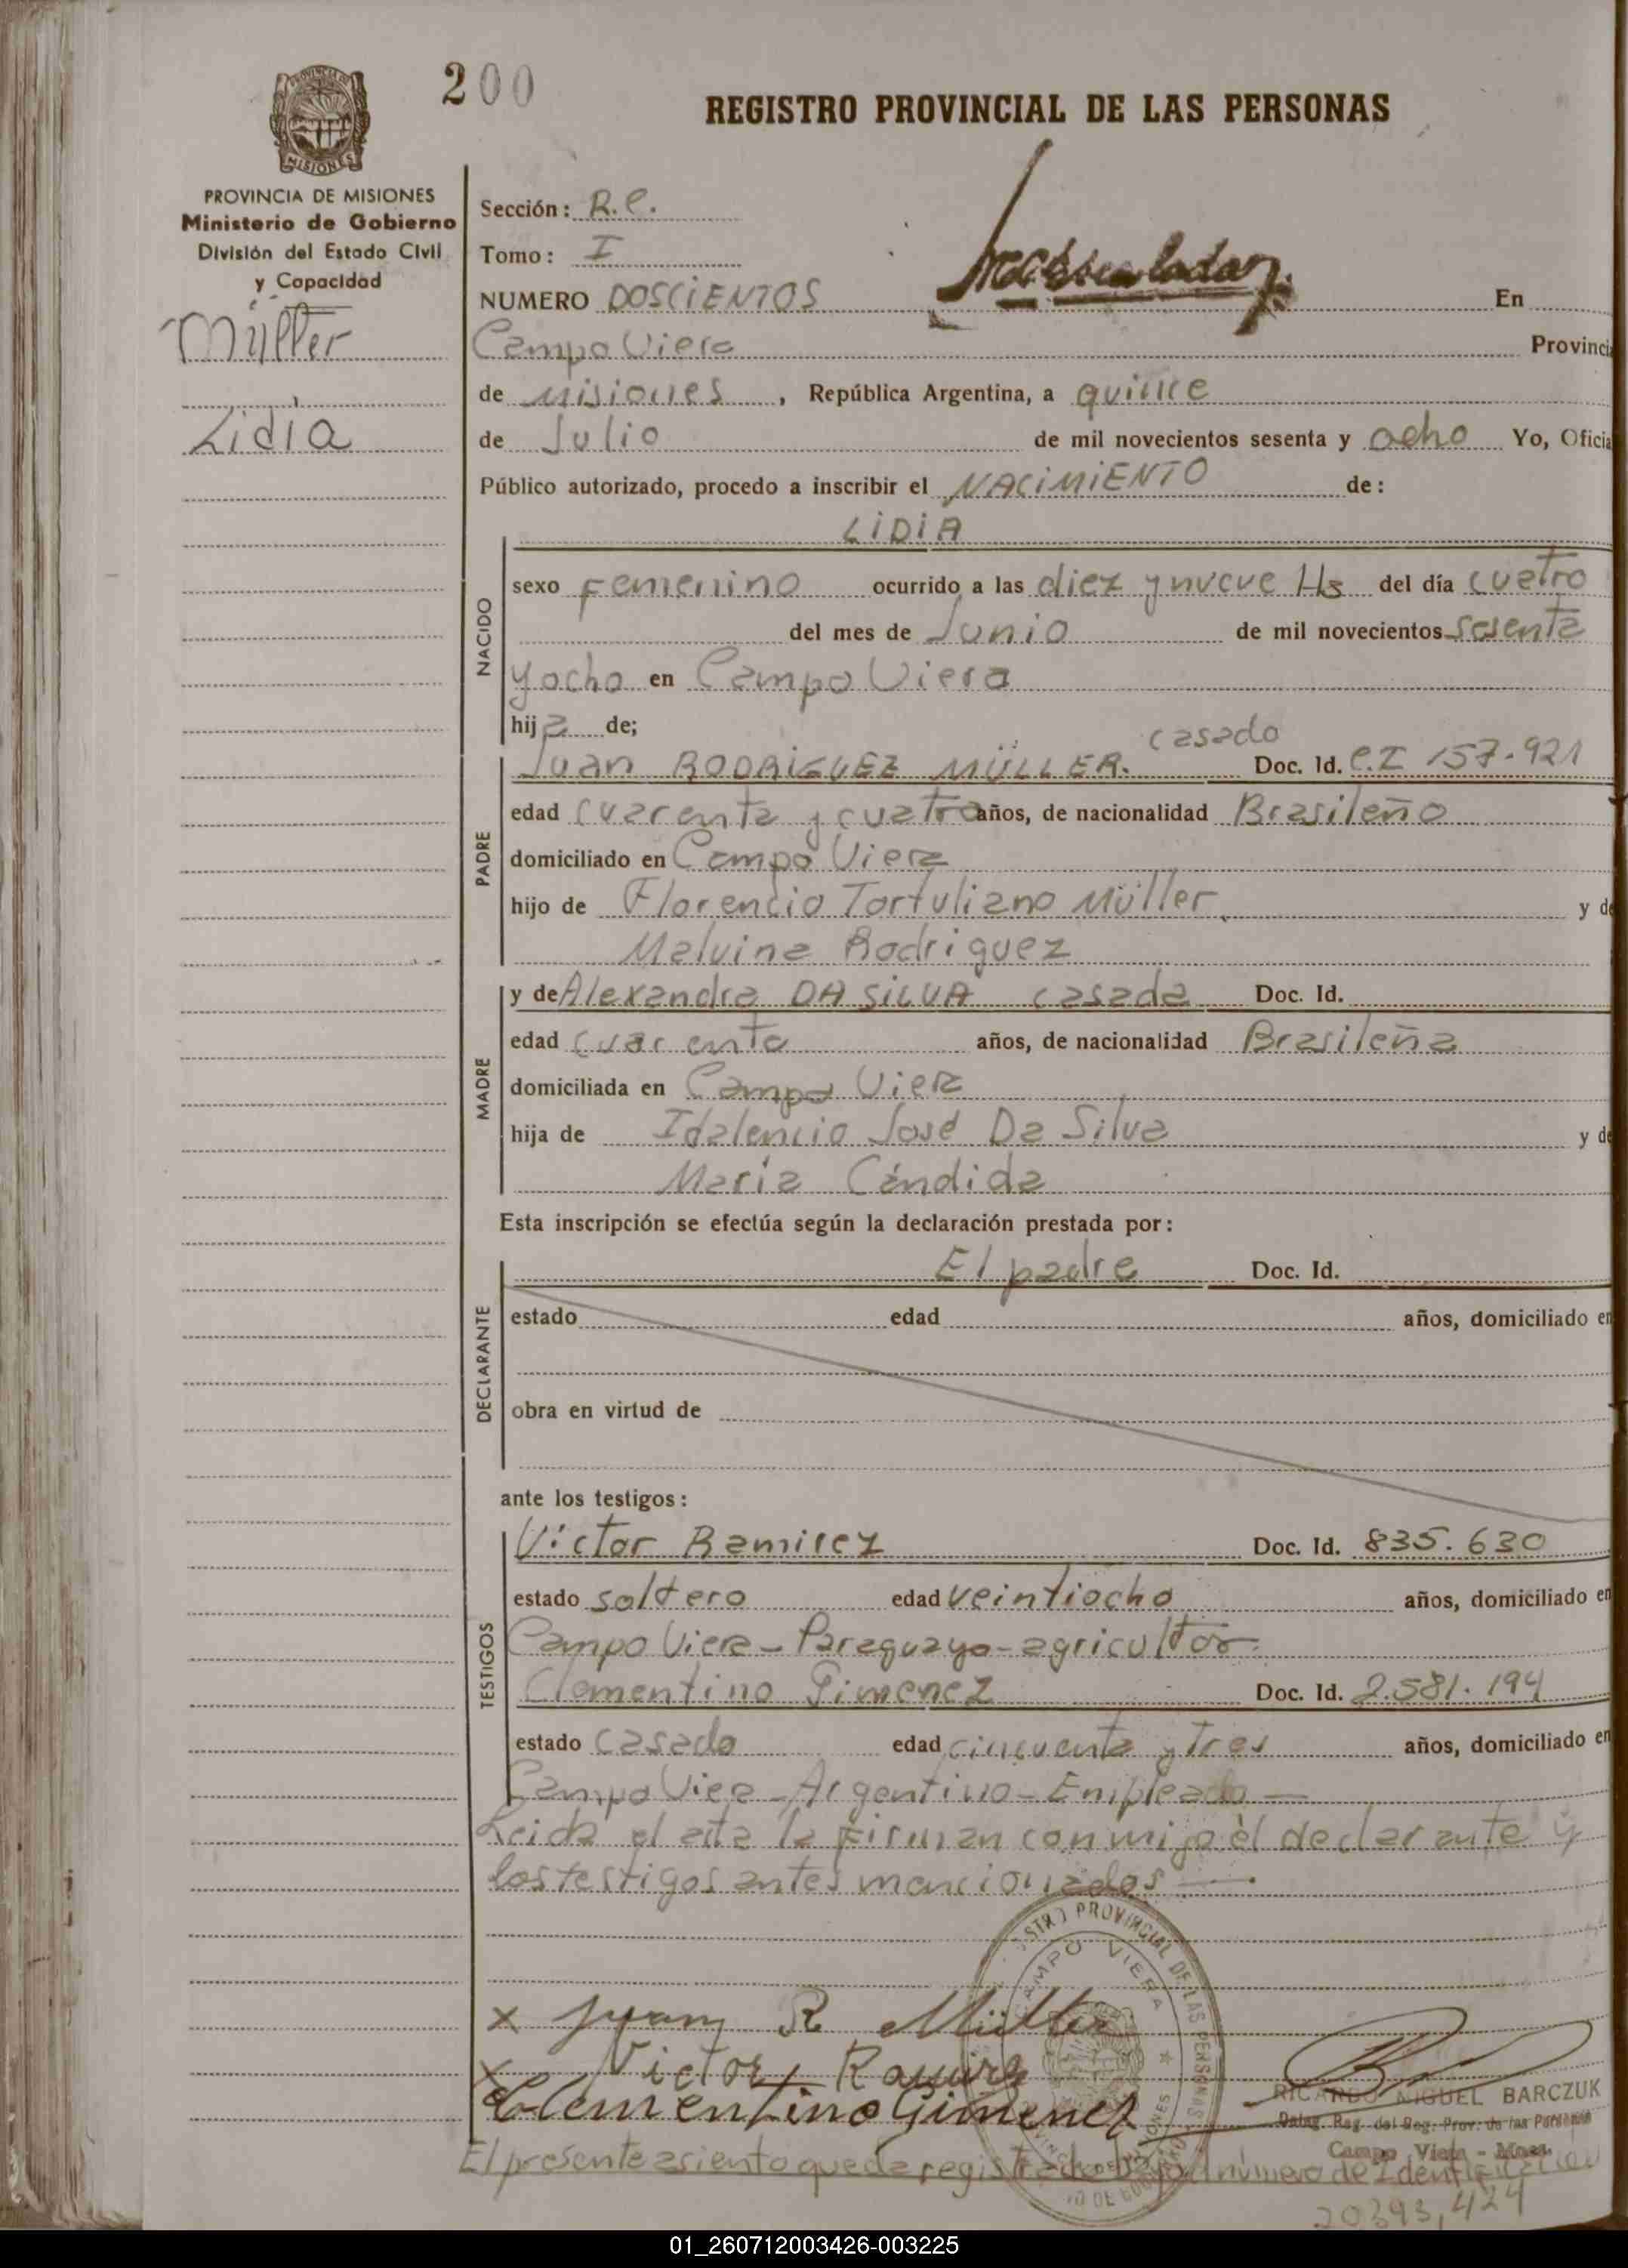 200
REGISTRO PROVINCIAL DE LAS PERSONAS
MISIONES
PROVINCIA DE MISIONES
Ministerio de Gobierno
División del Estado Civil
y Capacidad
Müller
Lidia
Sección: R.C.
Tomo: I
NUMERO DOSCIENTOS En
Campo Viera Provincia
de Misiones, República Argentina, a quince
de Julio de mil novecientos sesenta y ocho Yo, Oficia
Público autorizado, procedo a inscribir el NACIMIENTO de:
LIDIA
NACIDO
sexo Femenino ocurrido a las diez y nueve Hs del día cuatro
del mes de Junio de mil novecientos sesenta
y ocho en Campo Viera
hija de;
casado
Juan RODRIGUEZ MÜLLER. Doc. Id. C.I 157.921
PADRE
edad cuarenta y cuatro años, de nacionalidad Brasileño
domiciliado en Campo Viera
hijo de Florencio Tortuliano Müller y de
Malvina Rodriguez
MADRE
y de Alexandra DA SILVA casada Doc. Id.
edad cuarenta años, de nacionalidad Brasileña
domiciliada en Campo Viera
hija de Idalencio José Da Silva y de
María Cándida
Esta inscripción se efectúa según la declaración prestada por:
El padre Doc. Id.
DECLARANTE
estado edad años, domiciliado en
obra en virtud de
ante los testigos:
Victor Ramirez Doc. Id. 835.630
TESTIGOS
estado soltero edad veintiocho años, domiciliado en
Campo Viera - Paraguayo - agricultor.
Clementino Gimenez Doc. Id. 2.581.194
estado casado edad cincuenta y tres años, domiciliado en
Campo Viera - Argentino - Empleado —
Leida el acta la firman conmigo èl declarante y
los testigos antes mencionados —.
x Juan R Müller
x Victor Ramirez
x Clementino Gimenez
CAMPO VIERA
PROVINCIAL DE LAS PERSONAS
RICARDO MIGUEL BARCZUK
Deleg. Reg. del Reg. Prov. de las Personas
Campo Viera - Mnes.
El presente asiento queda registrado bajo el número de Identificación
20393,424
01_260712003426-003225